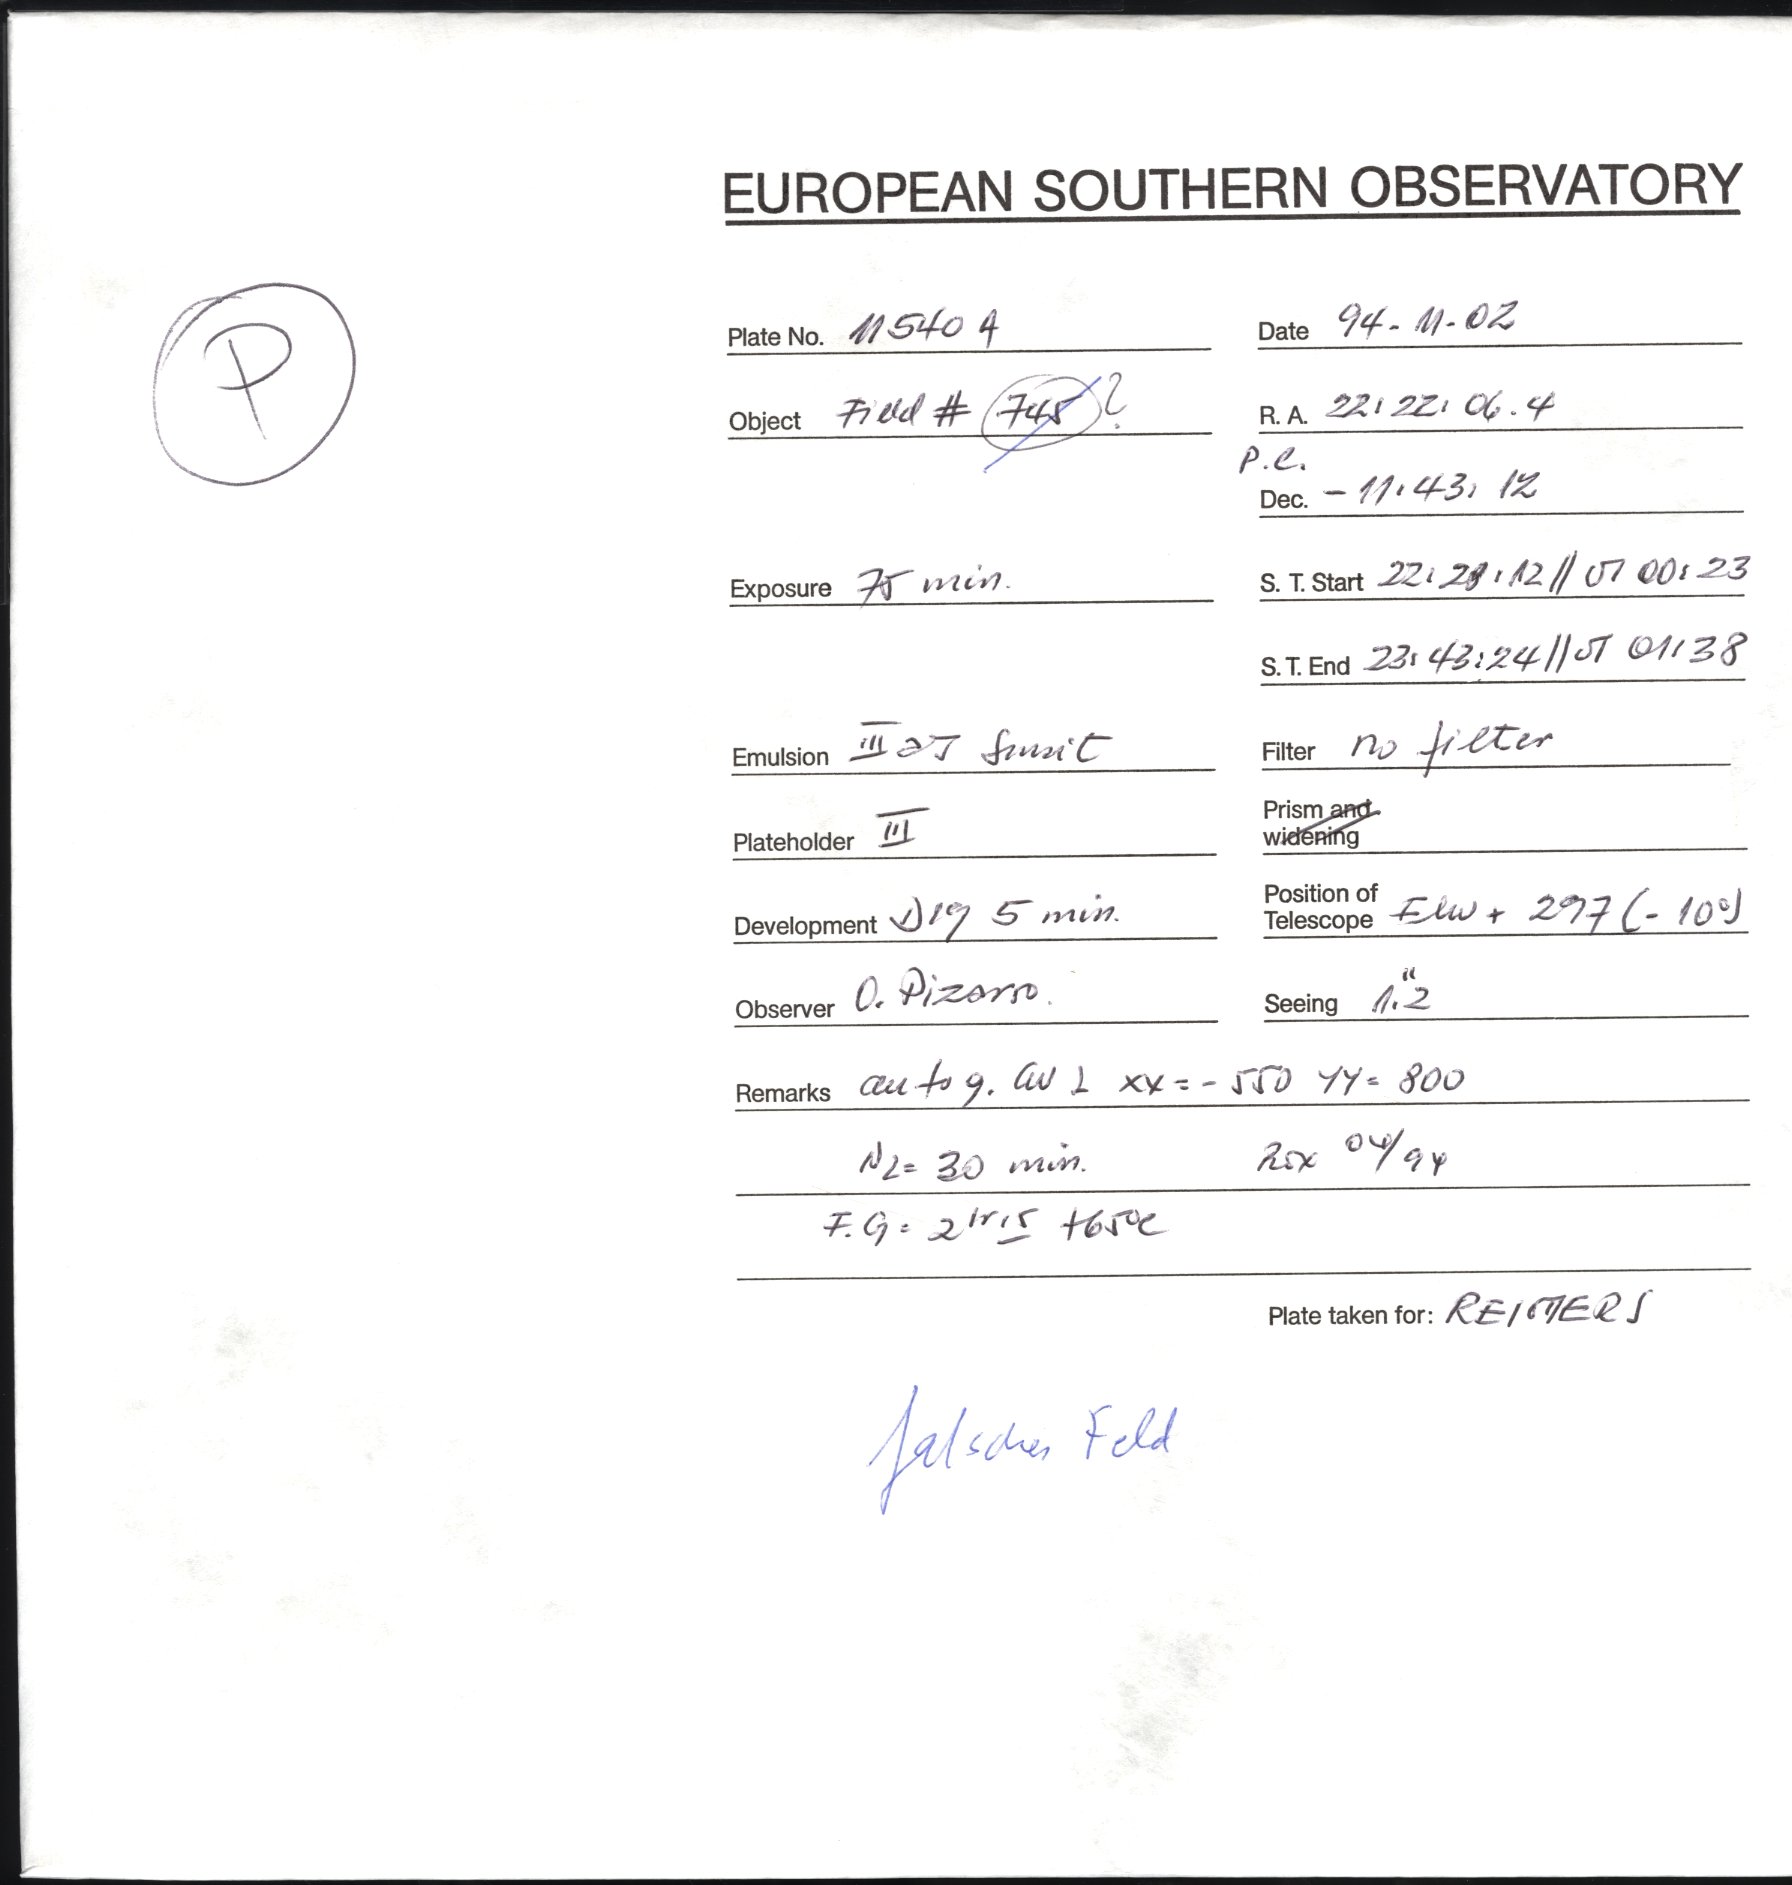 EUROPEAN SOUTHERN OBSERVATORY
P
Plate No. 11540 A
Date 94-11-02
Object Field # 745 ?
R. A. 22: 22: 06.4
P.C.
Dec. - 11: 43: 12
Exposure 75 min.
S. T. Start 22: 28: 12 // UT 00: 23
S. T. End 23: 43: 24 // UT 01: 38
Emulsion III aJ
Filter no filter
Plateholder III
Prism and widening
Development D19 5 min.
Position of Telescope + 297 (- 10°)
Observer O. Pizarro.
Seeing 1.2"
Remarks autog. XX = - 550 YY = 800
N2 = 30 min. 04/94
F.G = 2 hr 15 +65°C
Plate taken for: REIMERS
falsches Feld